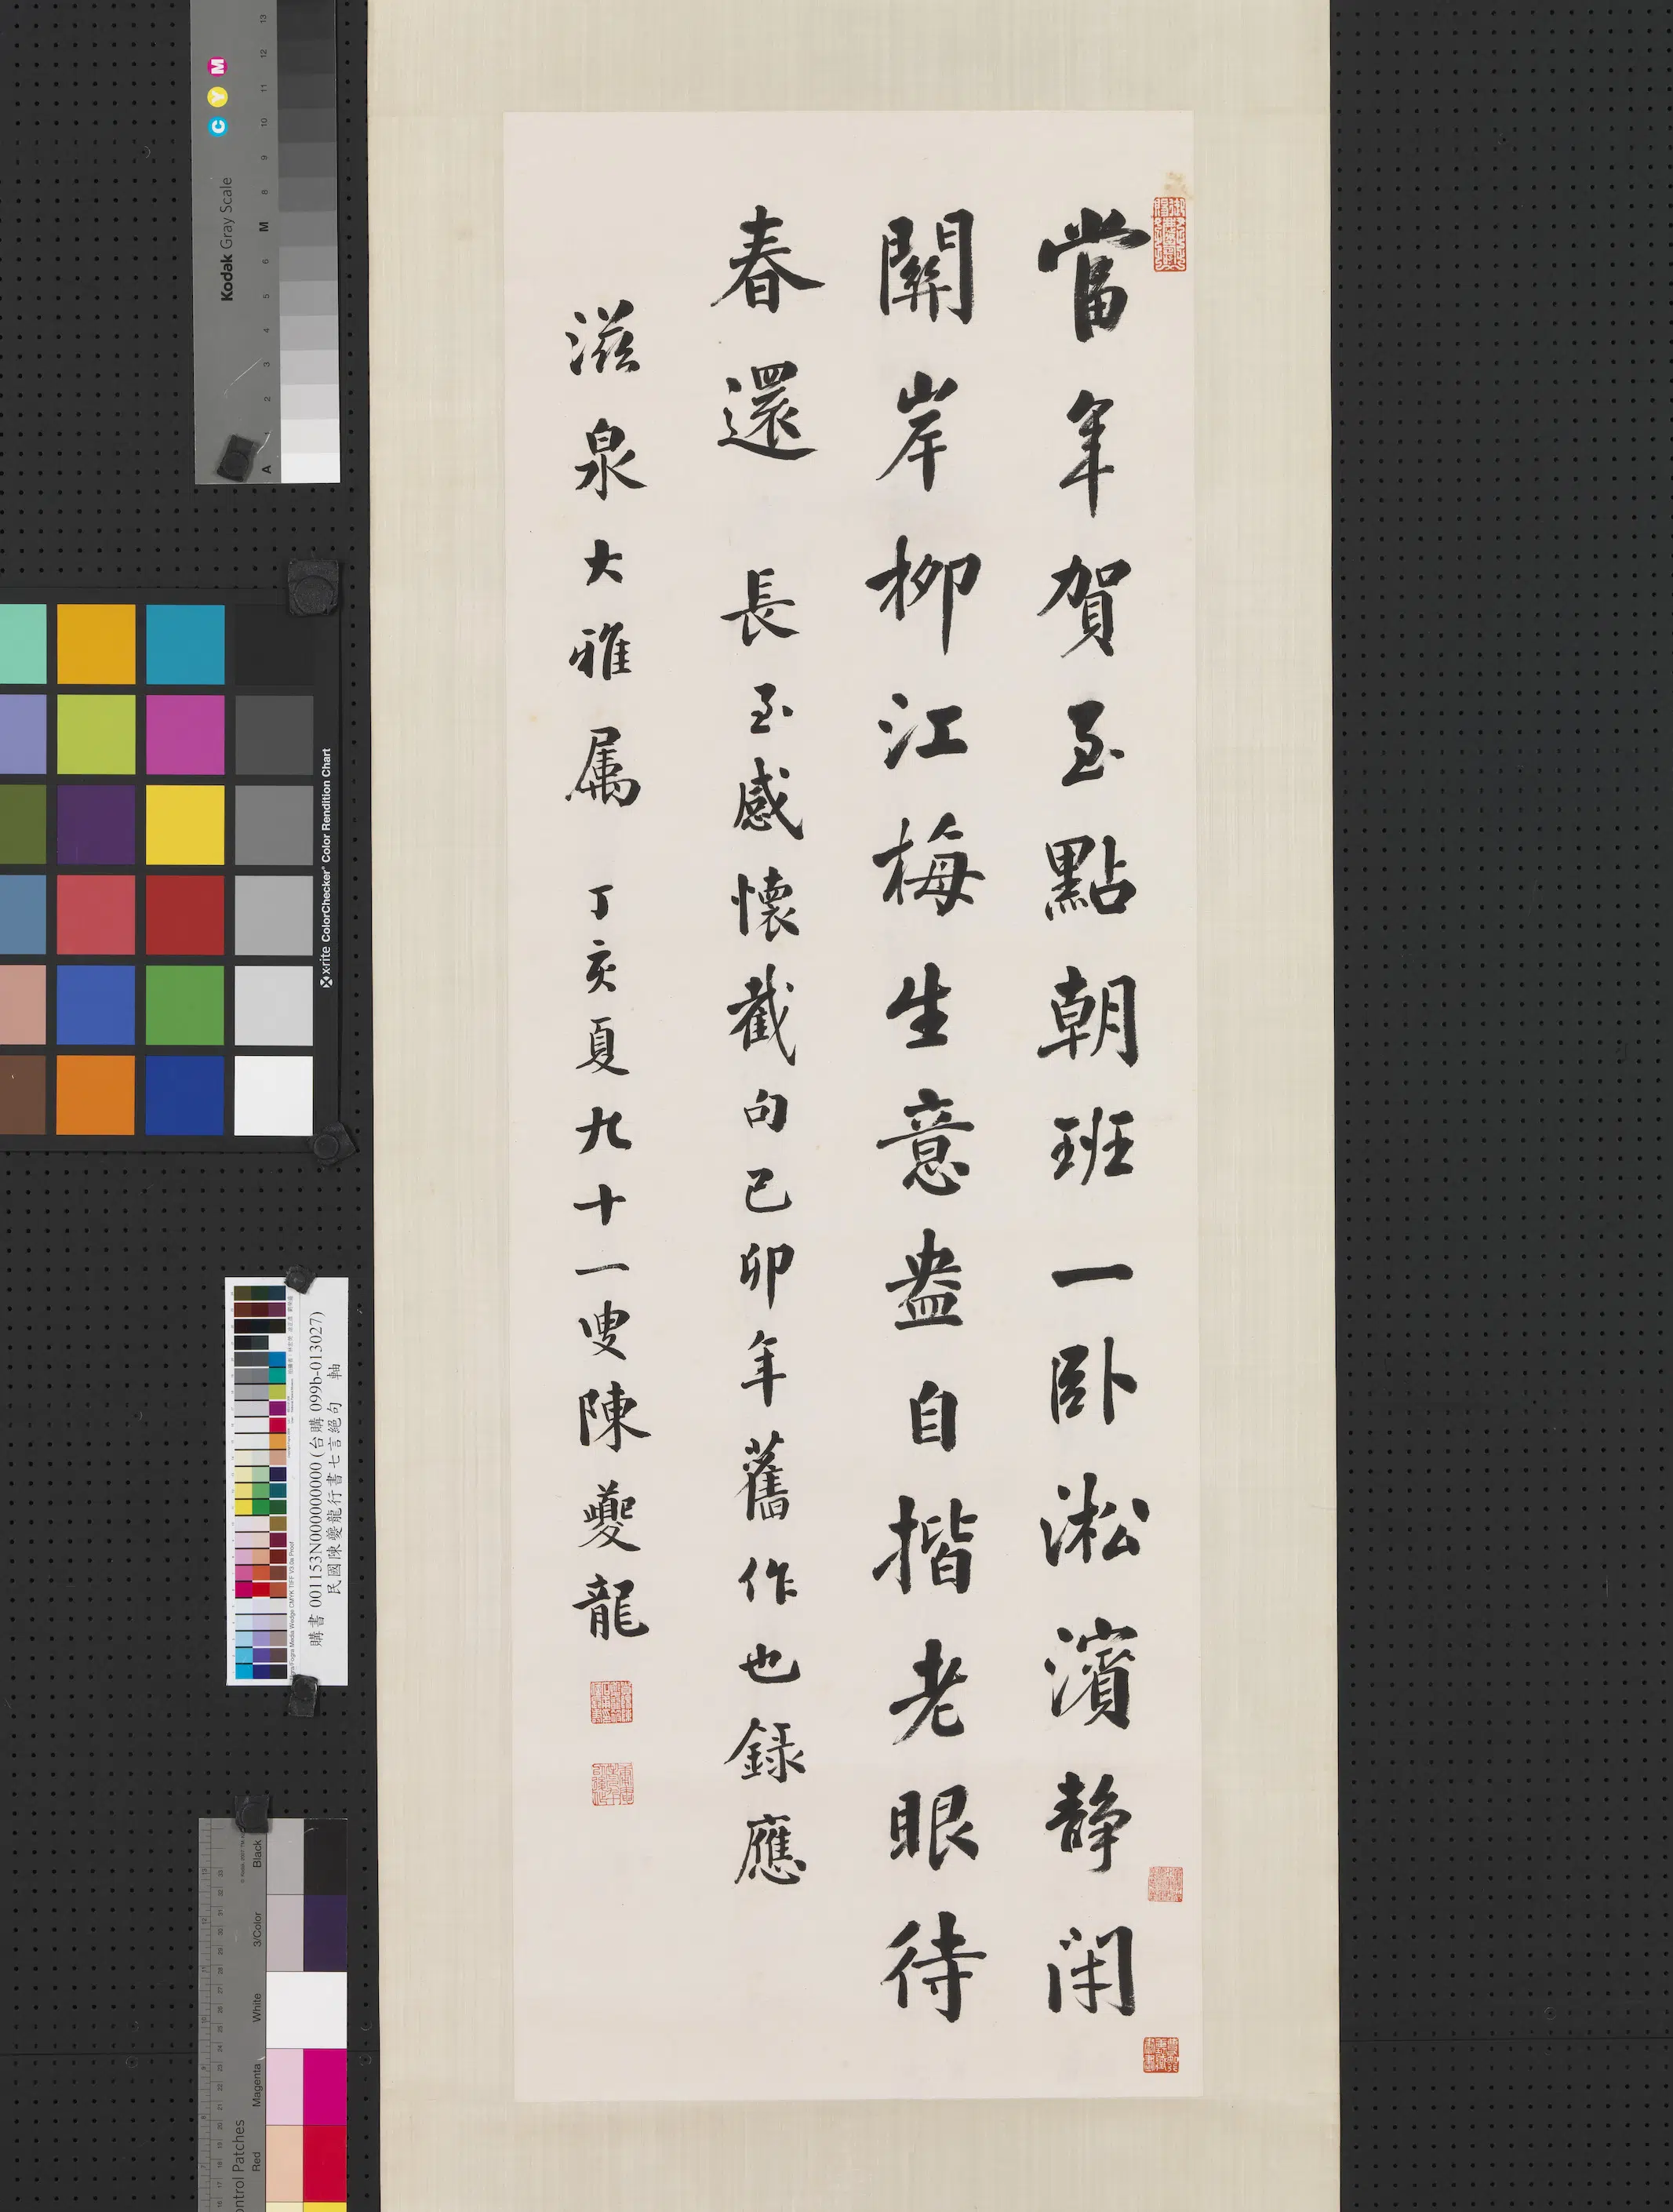 當年賀至點朝班一卧淞濱静閑
關岸柳江梅生意盎自揩老眼待
春還 長至感懷截句己卯年舊作也錄應
滋泉大雅属 丁亥夏九十一叟陳夔龍
Kodak Gray Scale
C Y M
A 1 2 3 4 5 6 M 8 9 10 11 12 13
x-rite ColorChecker Color Rendition Chart
購書 001153N000000000 (台購 099b-013027)
民國陳夔龍行書七言絕句 軸
Black
3/Color
White
Magenta
Red
ontrol Patches